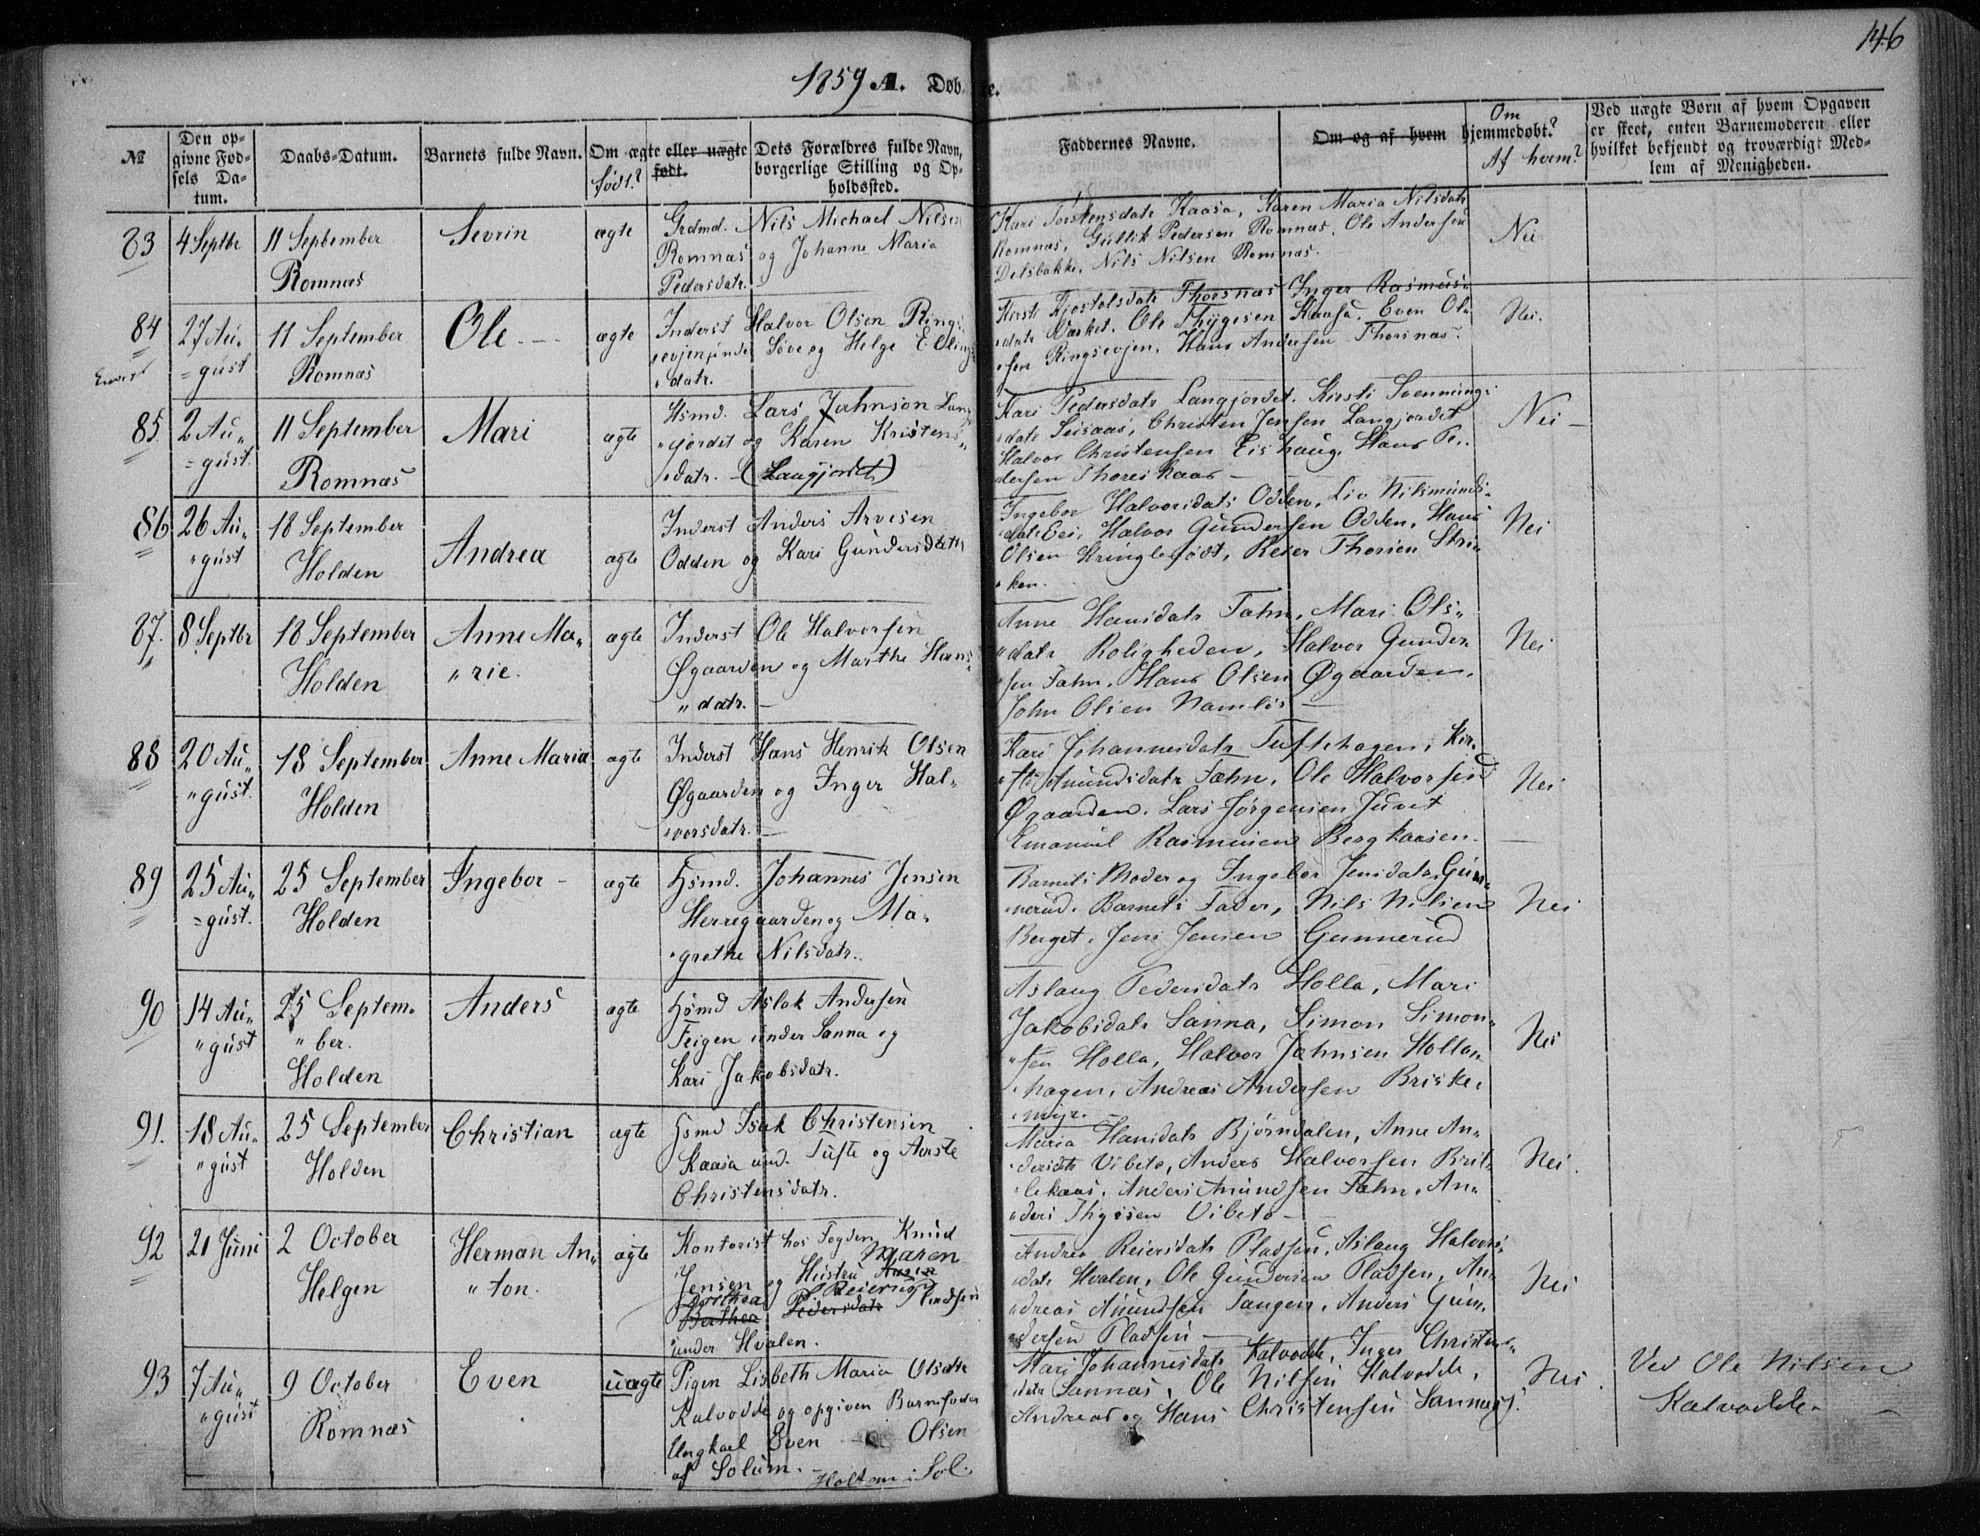 146
1859 A. Døbte.
№
Den op-
givne Fød-
sels Da-
tum.
Daabs-Datum.
Barnets fulde Navn.
Om ægte eller uægte
født.
født?
Dets Forældres fulde Navn,
borgerlige Stilling og Op-
holdssted.
Faddernes Navne.
Om og af hvem hjemmedøbt?
Om
Af hvem?
Ved uægte Børn af hvem Opgaven
er skeet, enten Barnemoderen eller
hvilket bekjendt og troværdigt Med-
lem af Menigheden.
83
4 Septbr
11 September
Romnæs
Sevrin
ægte
Grdmd. Nils Michael Nilsen
Romnæs og Johanne Maria
Pedersdatr. —
Kari Torstensdatr Kaasa, Karen Maria Nilsdatr
Romnæs, Gullik Pedersen Romnæs, Ole Andersen
Delsbakke, Nils Nilsen Romnæs.
Nei
84
27 Au„
=gust
11 September
Romnæs
Ole — —
ægte
Inderst Halvor Olsen Rings
evjen under Søve og Helge Elling
datr.
Kirsti Kjostolsdatr Thorsnæs, Inger Rasmus„
datr Værket, Ole Thygesen Kaasa, Even Ol„
sen Ringsevjen, Hans Andersen Thorsnæs.
Nei.
85
2 Au„
=gust.
11 September
Romnæs
Mari
ægte
Hsmd. Lars Johnson Lang
gjordet og Karen Kristens„
datr. — (Langjordet)
Kari Pedersdatr Langjordet, Kirsti Svennings
datr Seisaas, Christen Jensen Langjordet
Halvor Christensen Eishaug, Hans Pe„
dersen Thoreskaas —
Nei —
86
26 Au„
„gust
18 September
Holden
Andrea
ægte
Inderst Anders Arvesen
Odden og Kari Gundersdatr
Ingebor Halvorsdatr Odden, Liv Nilsmunds„
datr Eei, Halvor Gundersen Odden, Hans
Olsen Kringlefodt, Reier Thorsen Stri„
ken.
Nei
87.
8 Septbr
18 September
Holden
Anne Ma„
„rie.
ægte
Inderst Ole Halvorsen
Øgaarden og Marthe Hans„
„datr. —
Anne Hansdatr Fahn, Mari Ols„
„datr Roligheden, Halvor Gunder„
sen Fahn, Hans Olsen Øgaarden,
John Olsen Namløs —
Nei
88
20 Au„
„gust.
18 September
Holden
Anne Maria
ægte
Inderst Hans Henrik Olsen
Øgaarden og Inger Hal„
vorsdatr. —
Kari Johannesdatr Tuftehagen, Kir„
sti Amundsdatr Fahn, Ole Halvorsen
Øgaarden, Lars Jørgensen Juvet
Emanuel Rasmusen Bergkaasen. —
Nei
89
25 Au„
=gust.
25 September
Holden
Ingebor —
ægte
Hsmd. Johannes Jensen
Herregaarden og Ma„
grethe Nilsdatr..
Barnets Moder og Ingebor Jensdatr Gun„
nerud, Barnets Fader, Nils Nilsen
Berget, Jens Jensen Gunnerud
Nei
90
14 Au„
„gust
25 Septem„
„ber.
Holden
Anders
ægte
Hsmd Aslak Andersen
Teigen under Sanna og
Kari Jakobsdatr.
Aslaug Pedersdatr Holla, Mari
Jakobsdatr Sanna, Simon Simon„
„sen Holla, Halvor Johnsen Holla„
hagen, Andreas Andersen Briske„
myr.
Nei
91.
18 Au„
„gust
25 September
Holden
Christian
ægte
Hsmd Isak Christensen
Kaasa und. Tufte og Aerste
Christensdatr.
Maria Hansdatr Bjørndalen, Anne An„
dersdtr Vibeto, Anders Halvorsen Brit„
lekaas, Anders Amundsen Fahn, An„
ders Thygesen Vibeto —
Nei.
92
21 Juni
2 October
Helgen
Herman An„
„ton.
ægte
Kontorist hos Fogden Knud
Jensen og Hustru Karen Maren
Berthea Dorthea Pedersdatr Reiersdtr Pladsen
under Hvalen.
Andrea Reiersdatr Pladsen, Aslaug Halvors„
datr Hvalen, Ole Gundersen Pladsen, An„
dreas Amundsen Tangen, Anders Gun„
dersen Pladsen —
Nei
93
7 Au„
„gust
9 October
Romnæs
Even
uægte
Pigen Lisbeth Maria Olsdtr
Kalvodde og opgiven Barnefader
Ungkarl Even — Olsen
af Solum. — Holtom i Sol.
Mari Johannesdatr Kalvodde, Inger Christens„
datr Sannæs, Ole Nilsen Kalvodde,
Andreas og Hans Christensen Sannæs.
Nei.
Ved Ole Nilsen
Kalvodde. —